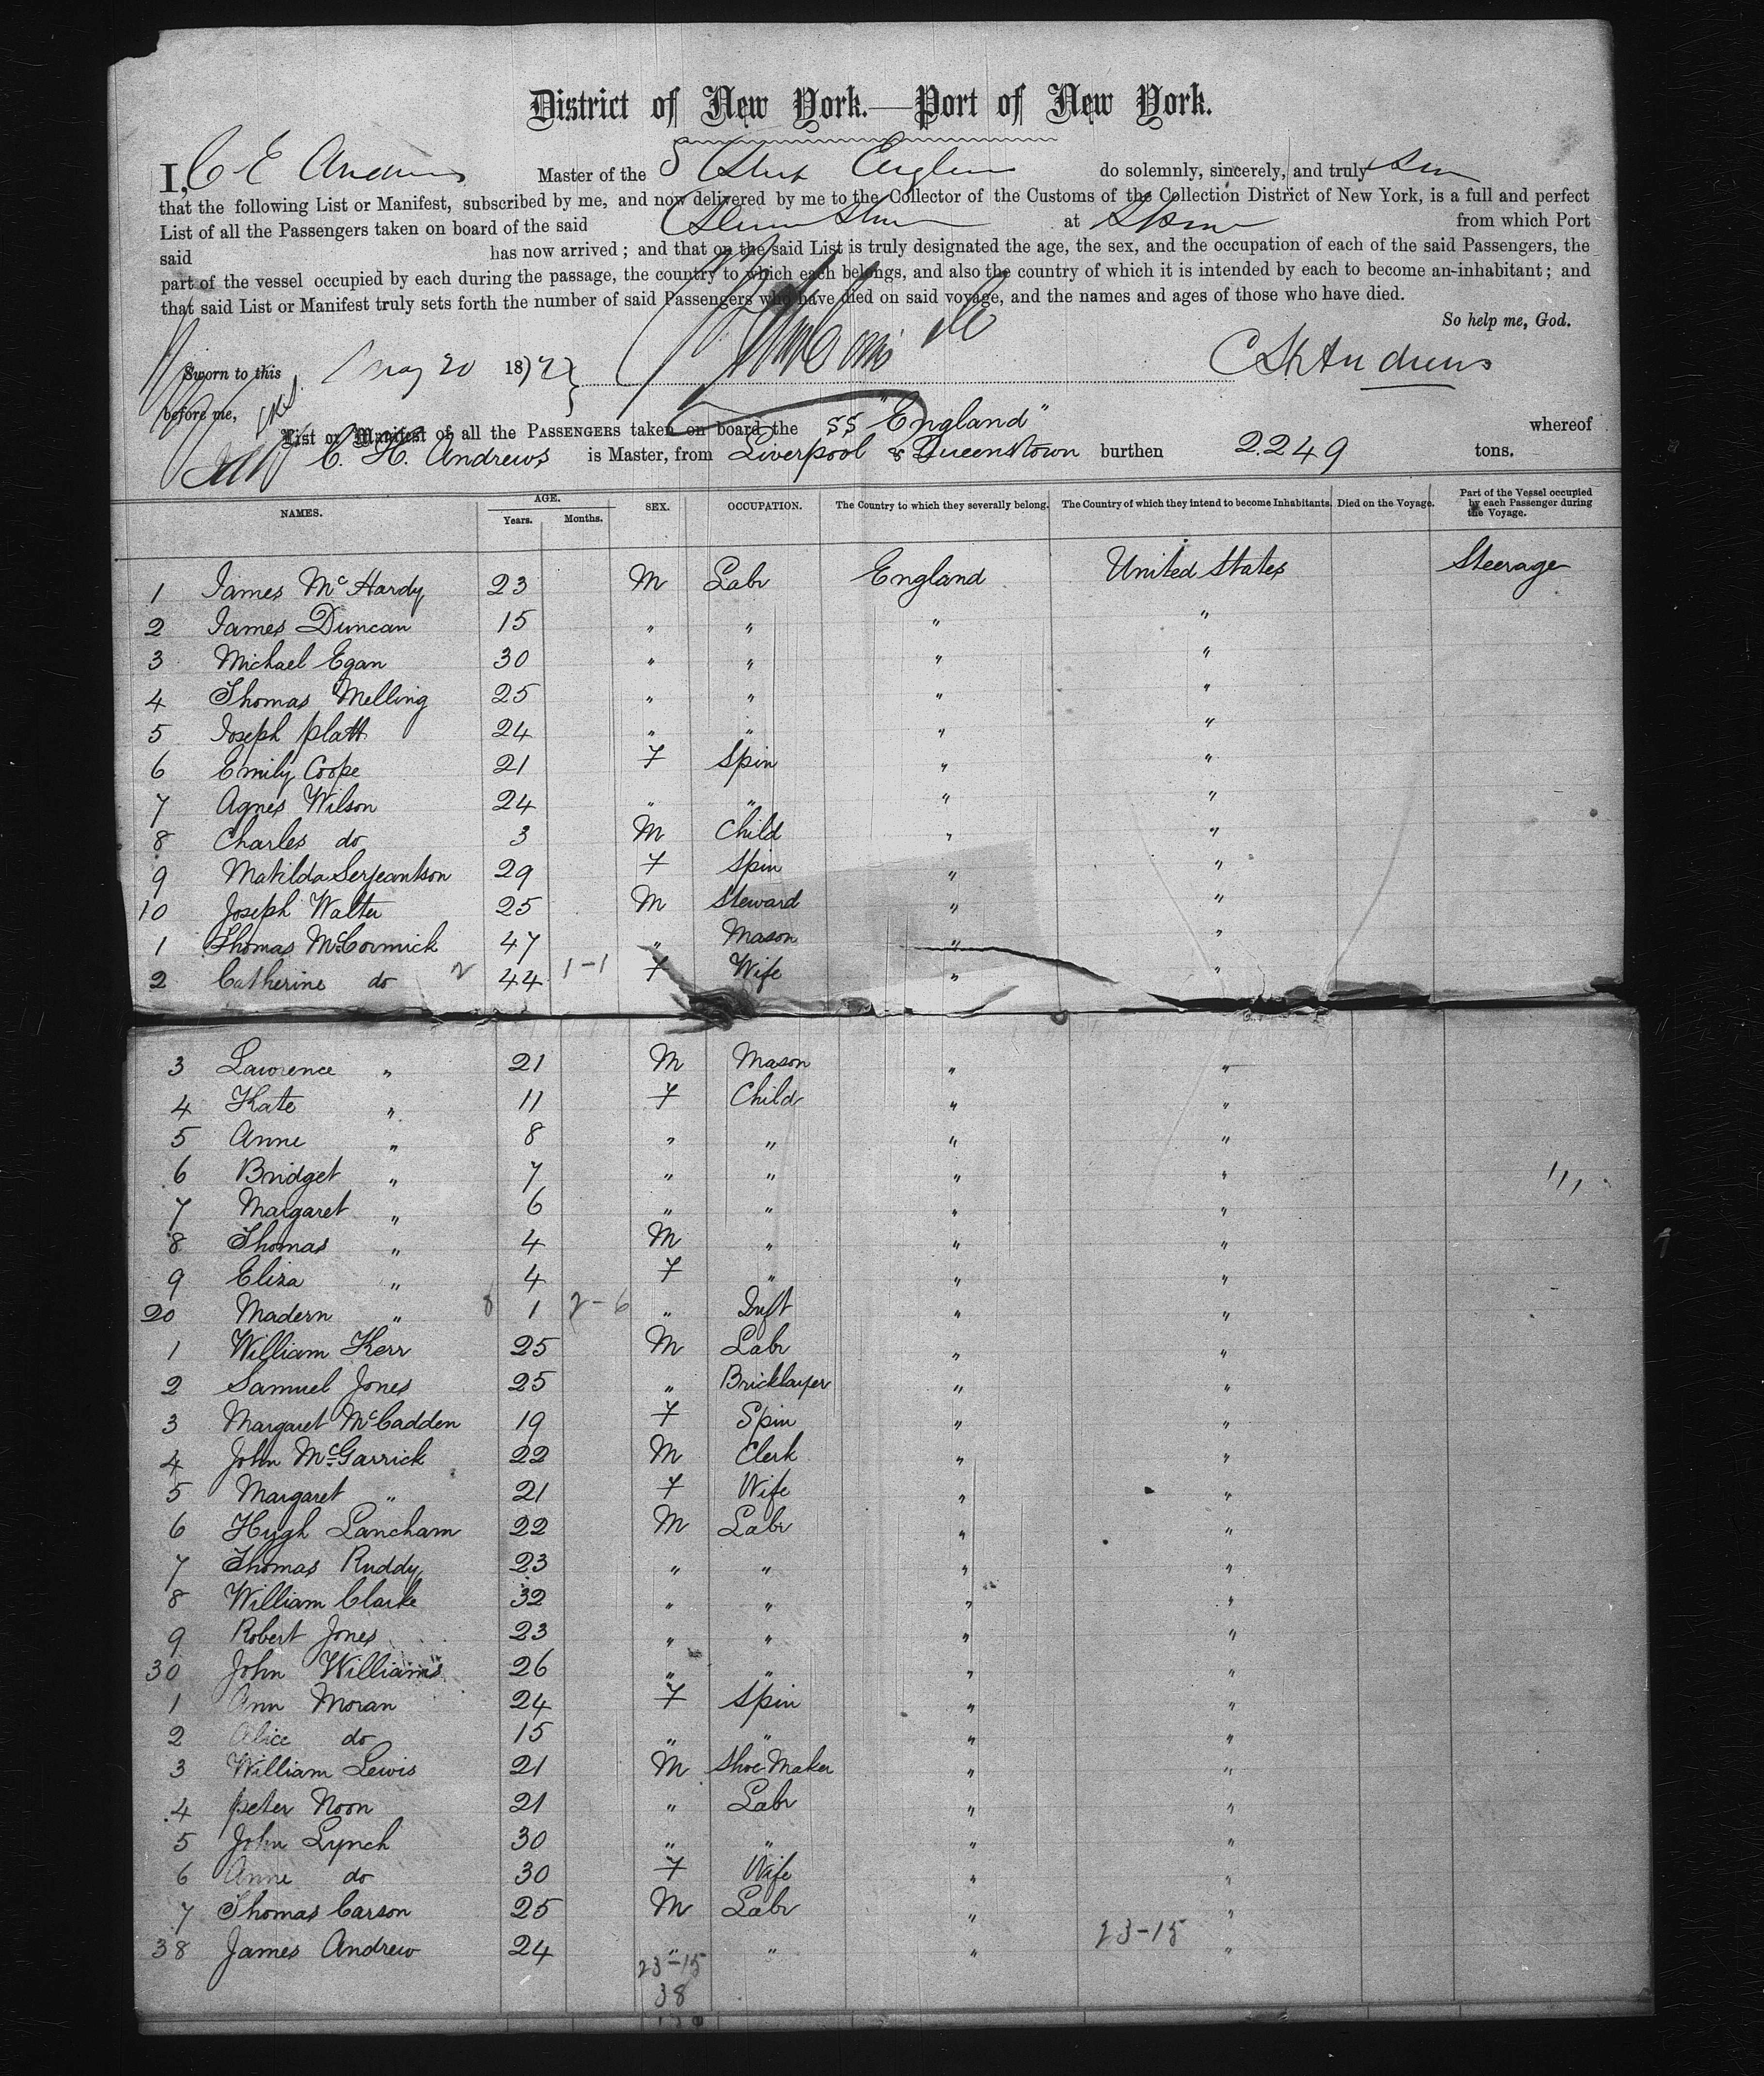 District of New York.—Port of New York.
I, C E Andrews Master of the S Ship England do solemnly, sincerely, and truly
that the following List or Manifest, subscribed by me, and now delivered by me to the Collector of the Customs of the Collection District of New York, is a full and perfect
List of all the Passengers taken on board of the said at from which Port
said has now arrived; and that on the said List is truly designated the age, the sex, and the occupation of each of the said Passengers, the
part of the vessel occupied by each during the passage, the country to which each belongs, and also the country of which it is intended by each to become an inhabitant; and
that said List or Manifest truly sets forth the number of said Passengers who have died on said voyage, and the names and ages of those who have died.
So help me, God.
Sworn to this May 20 187 C H Andrews
before me,
List or Manifest of all the PASSENGERS taken on board the SS "England" whereof
C. H. Andrews is Master, from Liverpool & Queenstown burthen 2249 tons.
NAMES. AGE. Years. Months. SEX. OCCUPATION. The Country to which they severally belong. The Country of which they intend to become Inhabitants. Died on the Voyage. Part of the Vessel occupied by each Passenger during the Voyage.
1 James McHardy 23 M Labr England United States Steerage
2 James Duncan 15 " " " "
3 Michael Egan 30 " " " "
4 Thomas Melling 25 " " " "
5 Joseph Platt 24 " " " "
6 Emily Coope 21 F Spin " "
7 Agnes Wilson 24 " " " "
8 Charles do 3 M Child " "
9 Matilda Serjeantson 29 F Spin " "
10 Joseph Walter 25 M Steward " "
1 Thomas McCormick 47 " Mason " "
2 Catherine do 2 44 1-1 F Wife " "
3 Lawrence " 21 M Mason " "
4 Kate " 11 F Child " "
5 Anne " 8 " " " "
6 Bridget " 7 " " " "
7 Margaret " 6 " " " "
8 Thomas " 4 M " " "
9 Eliza " 4 F " " "
20 Madern " 8 1 2-6 " Inft " "
1 William Kerr 25 M Labr " "
2 Samuel Jones 25 " Bricklayer " "
3 Margaret McCadden 19 F Spin " "
4 John McGarrick 22 M Clerk " "
5 Margaret " 21 F Wife " "
6 Hugh Lancham 22 M Labr " "
7 Thomas Ruddy 23 " " " "
8 William Clarke 32 " " " "
9 Robert Jones 23 " " " "
30 John Williams 26 " " " "
1 Ann Moran 24 F Spin " "
2 Alice do 15 " " " "
3 William Lewis 21 M Shoe Maker " "
4 Peter Noon 21 " Labr " "
5 John Lynch 30 " " " "
6 Anne do 30 F Wife " "
7 Thomas Carson 25 M Labr " "
38 James Andrew 24 " " " "
23-15 23-15
38